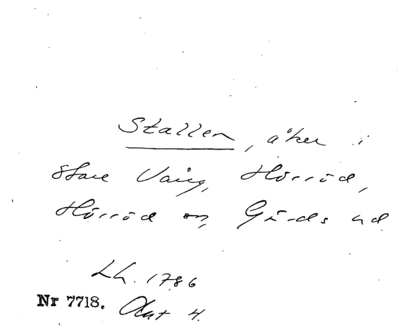 Stallen, åker i
Store Vång, Hörröd,
Hörröd sn, Gärds hd
Lh. 1786
Nr 7718. Akt 4.